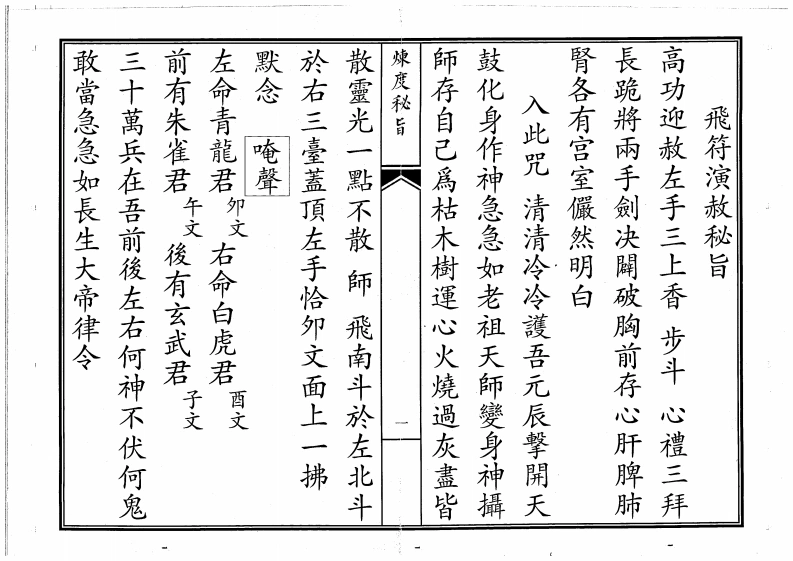 飛符演赦秘旨
高功迎赦左手三上香 步斗 心禮三拜
長跪將兩手劍決闢破胸前存心肝脾肺
腎各有宮室儼然明白
入此咒 清清冷冷護吾元辰擊開天
鼓化身作神急急如老祖天師變身神攝
師存自己爲枯木樹運心火燒過灰盡皆
煉度秘旨
一
散靈光一點不散 師 飛南斗於左北斗
於右三臺蓋頂左手恰夘文面上一拂
默念 唵聲
左命青龍君 夘文 右命白虎君 酉文
前有朱雀君 午文 後有玄武君 子文
三十萬兵在吾前後左右何神不伏何鬼
敢當急急如長生大帝律令